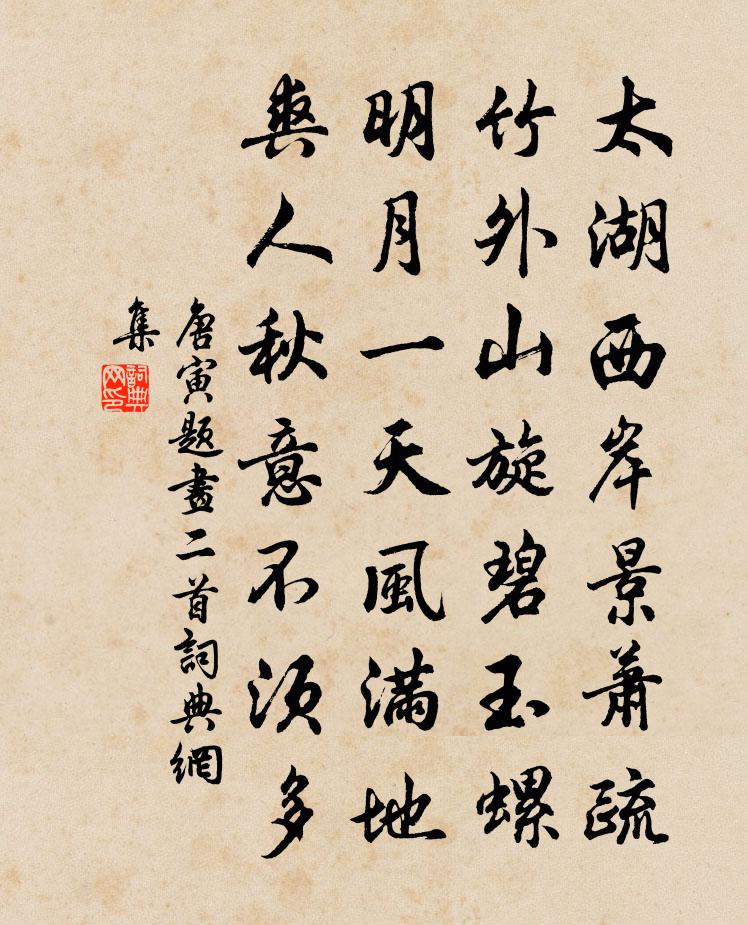 太湖西岸景蕭疏
竹外山旋碧玉螺
明月一天風滿地
與人秋意不須多
唐寅題畫二首詞典網
集
詞典
网印